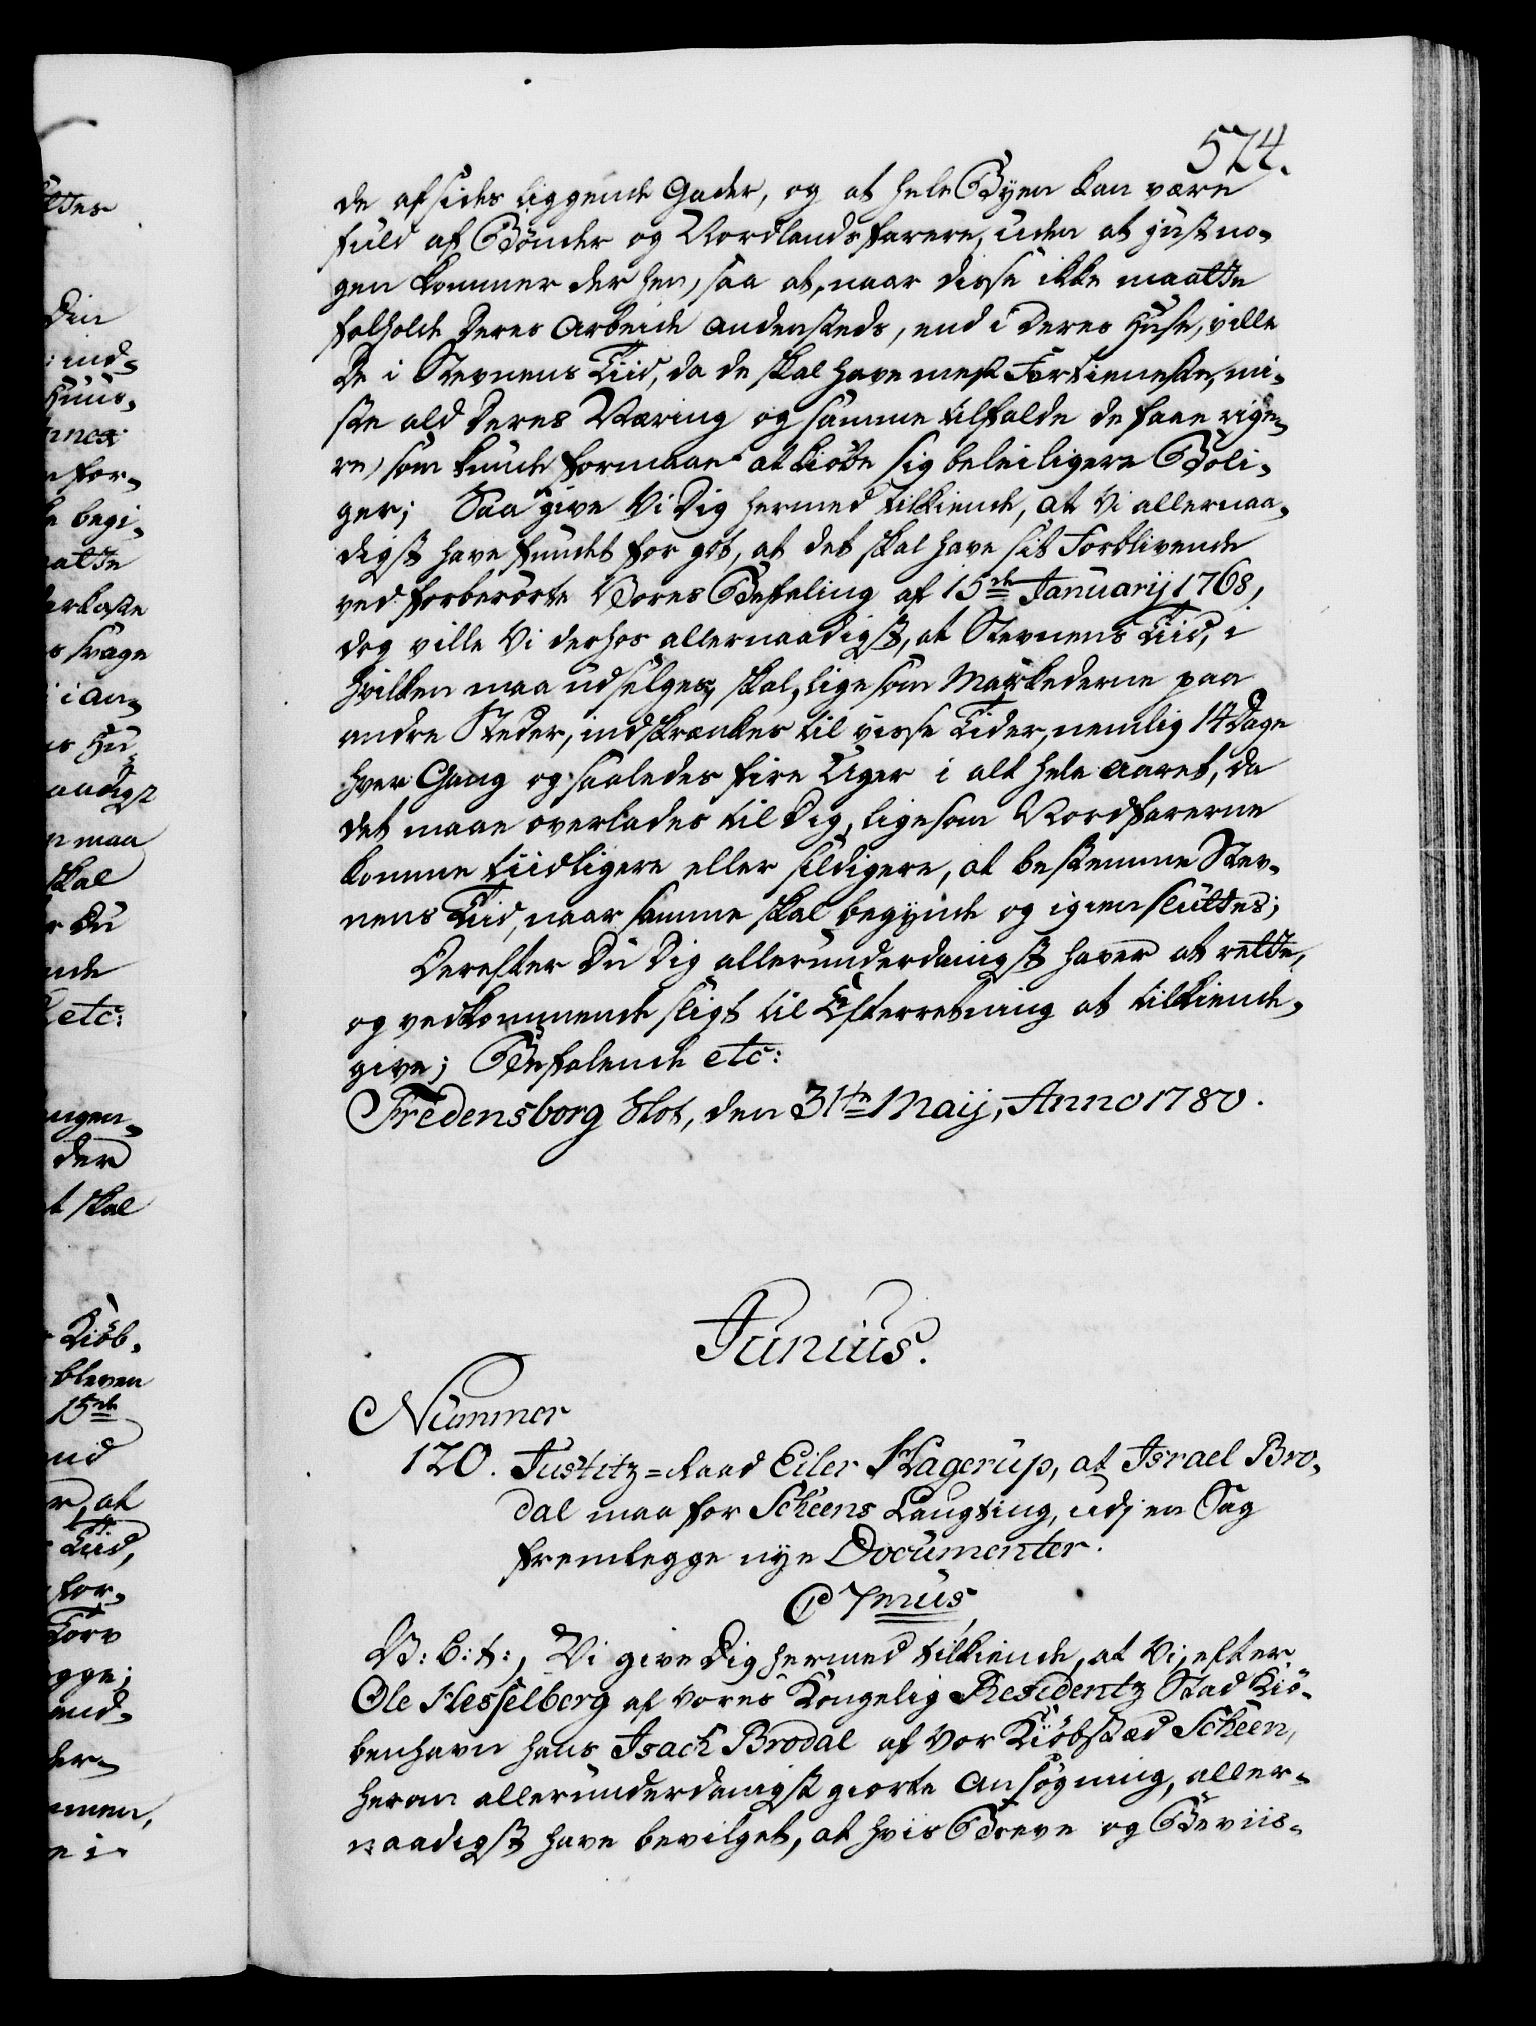 574.
de afsides liggende Gader, og at hele Byen kan være
fuld af Bönder og Nordlandsfarere, uden at just no-
gen kommer der hen, saa at, naar disse ikke maatte
falholde deres Arbeide andensteds, end i deres Huse, ville
de i Stevnens Tiid, da de skal have mest Fortieneste, mi-
ste ald deres Næring og samme tilfalde de faae rige-
re, som kunde formaae at kiöbe sig beleiligere Boli-
ger; Saa give Vi Dig hermed tilkiende, at Vi allernaa-
digst have fundet for got, at det skal have sit Forblivende
ved forberörte Vores Befaling af 15de Januarij 1768,
dog ville Vi derhos allernaadigst, at Stevnens Tiid, i
hvilken maa udselges, skal, ligesom Markederne paa
andre Steder, indskrænkes til visse Tider, nemlig 14 Dage
hver Gang og saaledes fire Uger i alt hele Aaret, da
det maae overlades til Dig, ligesom Nordfarerne
komme tiidligere eller sildigere, at bestemme Stev-
nens Tiid, naar samme skal begynde og igien sluttes;
Derefter Du Dig allerunderdanigst haver at rette,
og vedkommende sligt til Efterretning at tilkiende-
give; Befalende etc:
Fredensborg Slot, den 31te Maij, Anno 1780.
Junius.
Nummer
120. Justitz-Raad Eiler Hagerup, at Israel Bro-
dal maa for Scheens Laugting, udj en Sag
fremlegge nye Documenter.
C 7mus
V: G: t:, Vi give Dig hermed tilkiende, at Vi, efter
Ole Hesselberg af Vores Kongelig Residentz Stad Kiö-
benhavn hans Isach Brodal af Vor Kiöbstæd Scheen,
herom allerunderdanigst giorte Ansögning, aller-
naadigst have bevilget, at hvis Breve og Beviis-